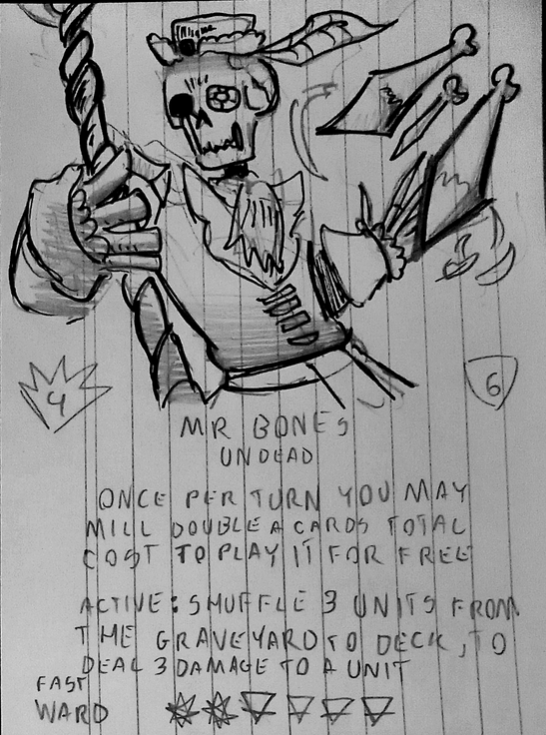 4
6
MR BONES
UNDEAD
ONCE PER TURN YOU MAY
MILL DOUBLE A CARDS TOTAL
COST TO PLAY IT FOR FREE
ACTIVE: SHUFFLE 3 UNITS FROM
THE GRAVEYARD TO DECK, TO
DEAL 3 DAMAGE TO A UNIT
FAST
WARD